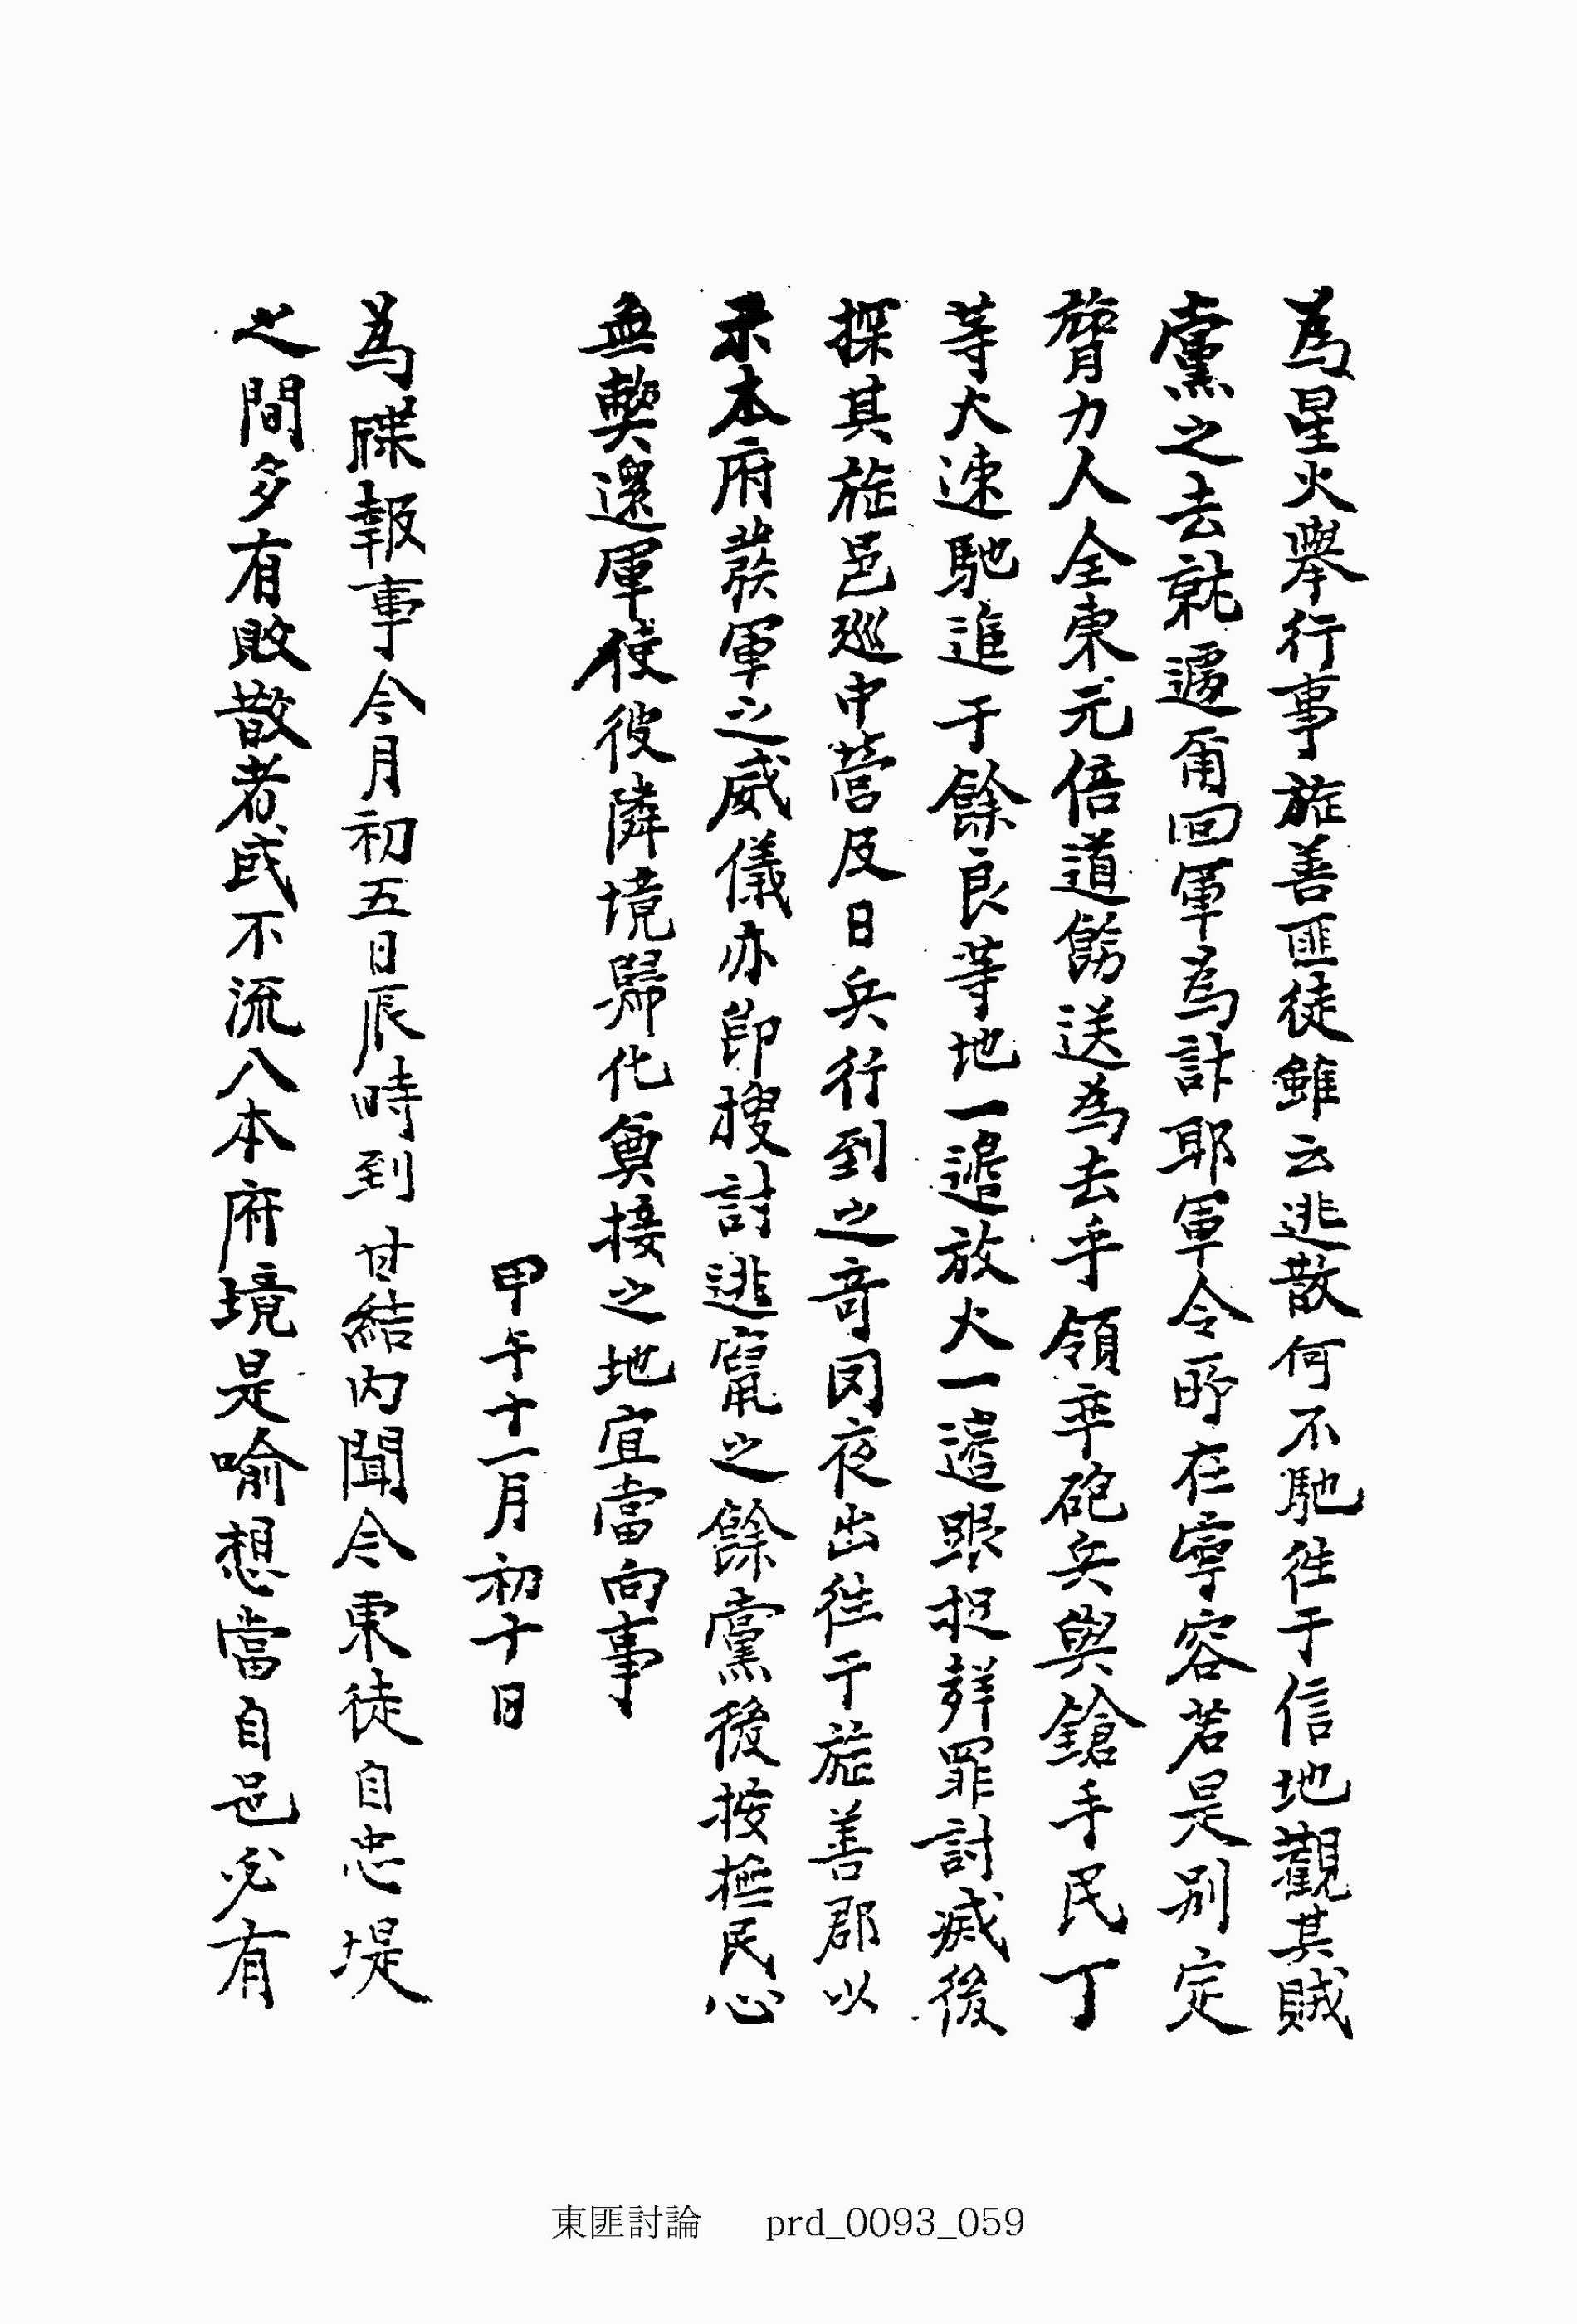 為星火擧行事旌善匪徒雖云逃散何不馳徃于信地觀其賊
黨之去就遽爾回軍為計耶軍令所在寧容若是別定
膂力人全東元倍道餙送為去乎領率砲兵與鎗手民丁
等大速馳進于餘良等地一邊放火一邊跟捉詳罪討滅後
探其旌邑巡中營及日兵行到之奇罔夜出徃于旌善郡以
示本府發軍之威儀亦即搜討逃竄之餘黨後按撫民心
無獘還軍使彼隣境歸化奠接之地宜當向事
甲午十一月初十日
為牒報事今月初五日辰時到 甘結內聞今東徒自忠堤
之間多有敗散者或不流入本府境是喻想當自邑必有
東匪討論 prd_0093_059